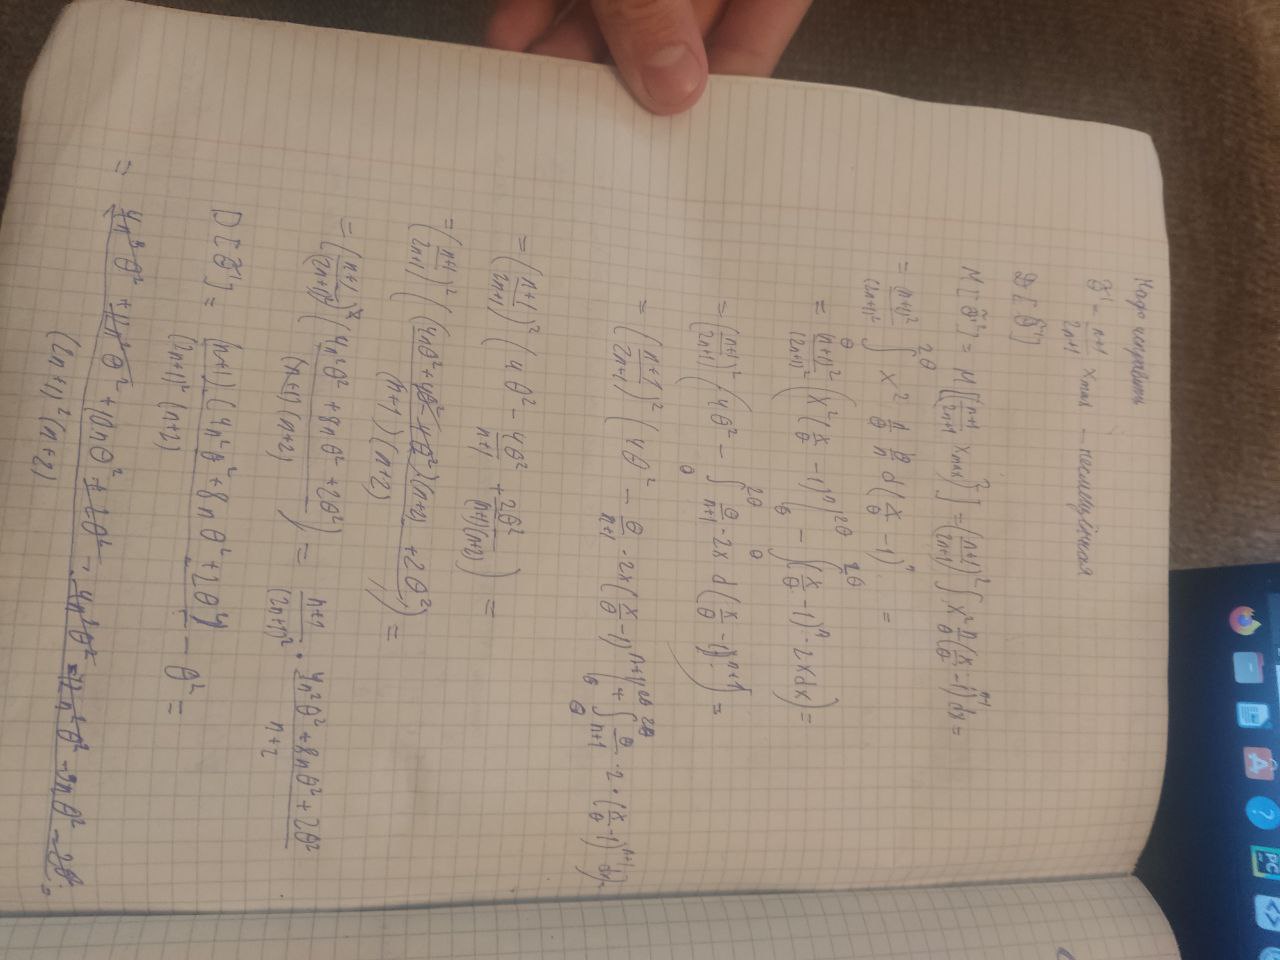 Надо исправить
θ̃' = n+1/2n+1 x_max — несмещённая
D[θ̃']
M[θ̃'²] = M[(n+1/2n+1 x_max)²] = (n+1/2n+1)² ∫ x² n/θ (x/θ - 1)^n-1 dx =
= (n+1)²/(2n+1)² ∫_θ^2θ x² d(x/θ - 1)^n =
= (n+1)²/(2n+1)² (x² (x/θ - 1)^n |_θ^2θ - ∫_θ^2θ (x/θ - 1)^n · 2x dx) =
= (n+1/2n+1)² (4θ² - ∫_θ^2θ θ/n+1 · 2x d(x/θ - 1)^n+1) =
= (n+1/2n+1)² (4θ² - θ/n+1 · 2x (x/θ - 1)^n+1 |_θ^2θ + ∫_θ^2θ θ/n+1 · 2 · (x/θ - 1)^n+1 dx) =
= (n+1/2n+1)² (4θ² - 4θ²/n+1 + 2θ²/(n+1)(n+2)) =
= (n+1/2n+1)² ((4nθ² + 4θ² - 4θ²)(n+2) + 2θ²/(n+1)(n+2)) =
= (n+1)²/(2n+1)² (4n²θ² + 8nθ² + 2θ²/(n+1)(n+2)) = n+1/(2n+1)² · 4n²θ² + 8nθ² + 2θ²/n+2
D[θ̃'] = (n+1)(4n²θ² + 8nθ² + 2θ²)/(2n+1)²(n+2) - θ² =